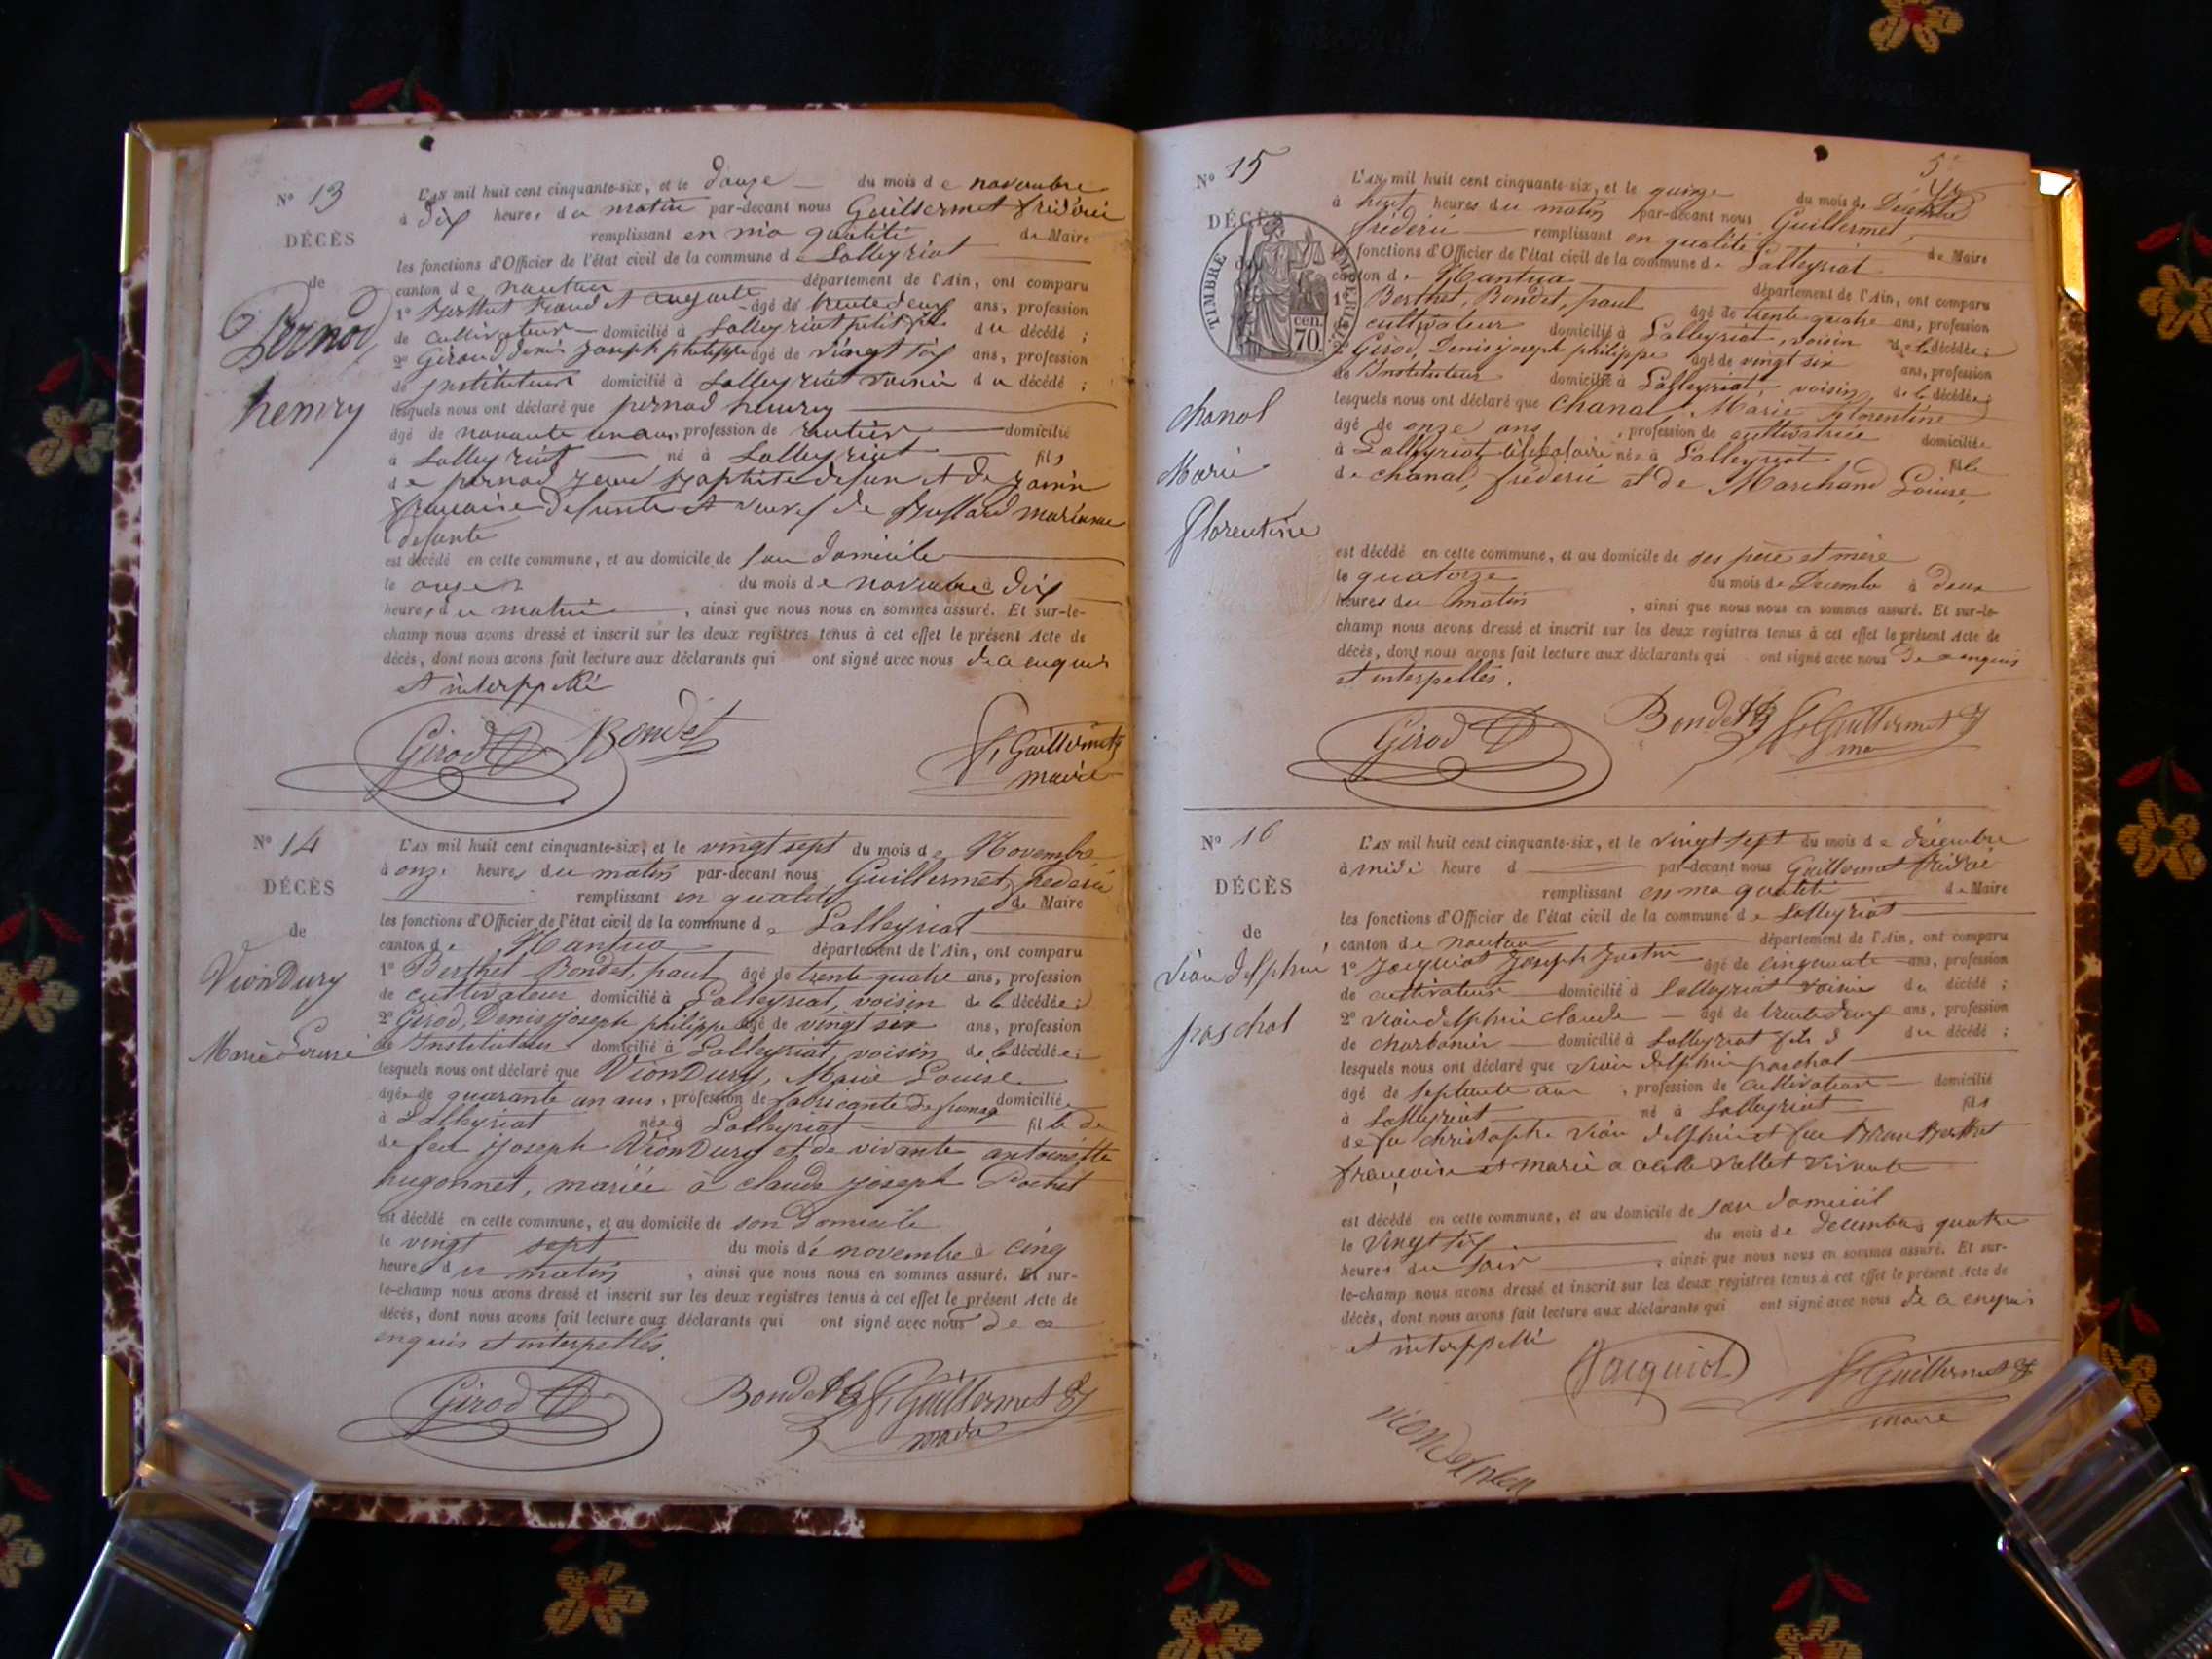 N° 13
DÉCÈS
de
Pernod
henry
L'AN mil huit cent cinquante-six, et le douze du mois de novembre
à dix heures du matin par-devant nous Guillermet frédéric
remplissant en ma qualité de Maire
les fonctions d'Officier de l'état civil de la commune d Lalleyriat
canton de nantua département de l'Ain, ont comparu
1° Berthet âgé de trente deux ans, profession
de cultivateur domicilié à Lalleyriat petit fils du décédé ;
2° Giraud denis joseph philippe âgé de vingt six ans, profession
de instituteur domicilié à Lalleyriat voisin du décédé ;
lesquels nous ont déclaré que pernod henry
âgé de nonante un ans, profession de rentier domicilié
à Lalleyriat né à Lalleyriat fils
de pernod jean baptiste defun et de
françoise defunte et veuf de marianne
defunte
est décédé en cette commune, et au domicile de son domicile
le onze du mois de novembre à dix
heures du matin , ainsi que nous nous en sommes assuré. Et sur-le-
champ nous avons dressé et inscrit sur les deux registres tenus à cet effet le présent Acte de
décès, dont nous avons fait lecture aux déclarants qui ont signé avec nous de ce enquis
et interppellé
Girod D Bondet f. Guillermet
maire
N° 14
DÉCÈS
de
Vion Dury
Marie Louise
L'AN mil huit cent cinquante-six, et le vingt sept du mois de Novembre
à onze heures du matin par-devant nous Guillermet, frederic
remplissant en qualité de Maire
les fonctions d'Officier de l'état civil de la commune de Lalleyriat
canton de Nantua département de l'Ain, ont comparu
1° Berthet Bondet, paul âgé de trente-quatre ans, profession
de cultivateur domicilié à Lalleyriat, voisin de la décédée ;
2° Girod, Denis joseph philippe âgé de vingt six ans, profession
de Instituteur domicilié à Lalleyriat, voisin de la décédée ;
lesquels nous ont déclaré que Vion Dury, Marie Louise
âgée de quarante un ans, profession de fabricante de fromag domiciliée
à Lalleyriat née à Lalleyriat fille de
de feu joseph Vion Dury et de vivante antoinette
hugonnet, mariée à claude joseph Pochet
est décédé en cette commune, et au domicile de son domicile
le vingt sept du mois de novembre à cinq
heures du matin , ainsi que nous nous en sommes assuré. Et sur-
le-champ nous avons dressé et inscrit sur les deux registres tenus à cet effet le présent Acte de
décès, dont nous avons fait lecture aux déclarants qui ont signé avec nous de ce
enquis et interpellés.
Girod D Bondet f. Guillermet
maire
N° 15
DÉCÈS
TIMBRE IMPERIAL
70. cen.
chanal
Marie
florentine
L'AN mil huit cent cinquante-six, et le quinze du mois de Décembre
à huit heures du matin par-devant nous Guillermet,
fréderic remplissant en qualité de Maire
les fonctions d'Officier de l'état civil de la commune de Lalleyriat
canton de Nantua département de l'Ain, ont comparu
1° Berthet, Bondet, paul âgé de trente-quatre ans, profession
cultivateur domicilié à Lalleyriat, voisin de la décédée ;
2° Girod, Denis joseph philippe âgé de vingt six ans, profession
de Instituteur domicilié à Lalleyriat, voisin de la décédée ;
lesquels nous ont déclaré que Chanal, Marie florentine
âgé de onze ans , profession de cultivatrice domiciliée
à Lalleyriat, célibataire née à Lalleyriat fille
de chanal, fréderic et de Marchand Louise,
est décédé en cette commune, et au domicile de ses père et mère
le quatorze du mois de Decembre à deux
heures du matin , ainsi que nous nous en sommes assuré. Et sur-le-
champ nous avons dressé et inscrit sur les deux registres tenus à cet effet le présent Acte de
décès, dont nous avons fait lecture aux déclarants qui ont signé avec nous De ce enquis
et interpellés.
Girod D Bondet f. Guillermet
N° 16
DÉCÈS
de
Vion delphin
paschal
L'AN mil huit cent cinquante-six, et le vingt sept du mois de décembre
à midi heure d par-devant nous Guillermet frédéric
remplissant en ma qualité de Maire
les fonctions d'Officier de l'état civil de la commune de Lalleyriat
canton de nantua département de l'Ain, ont comparu
1° Jacquiot Joseph Justin âgé de cinquante ans, profession
de cultivateur domicilié à Lalleyriat voisin du décédé ;
2° Vion delphin claude âgé de trente deux ans, profession
de charbonier domicilié à Lalleyriat fils du décédé ;
lesquels nous ont déclaré que vion delphin paschal
âgé de septante ans , profession de cultivateur domicilié
à Lalleyriat né à Lalleyriat fils
de feu christophe vion delphin et feu Berthet
françoise et marié a Vallet vivante
est décédé en cette commune, et au domicile de son domicil
le vingt six du mois de decembre quatre
heures du soir , ainsi que nous nous en sommes assuré. Et sur-
le-champ nous avons dressé et inscrit sur les deux registres tenus à cet effet le présent Acte de
décès, dont nous avons fait lecture aux déclarants qui ont signé avec nous de ce enquis
et interppellé
Jacquiot f. Guillermet
maire